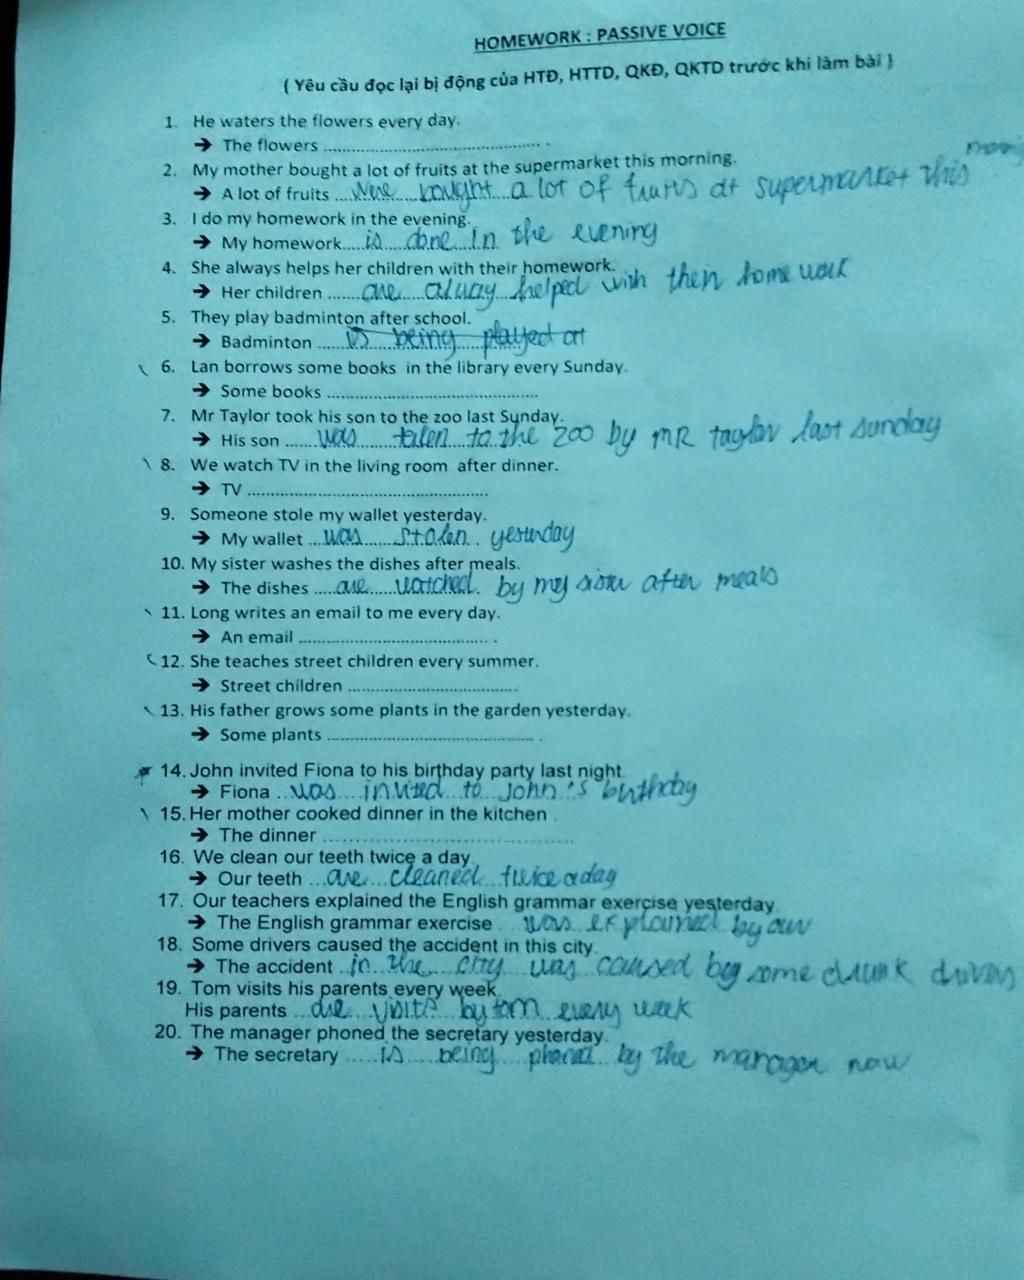 HOMEWORK : PASSIVE VOICE
( Yêu cầu đọc lại bị động của HTĐ, HTTD, QKĐ, QKTD trước khi làm bài )
1. He waters the flowers every day.
➔ The flowers ........................................ .
2. My mother bought a lot of fruits at the supermarket this morning.
➔ A lot of fruits were bought a lot of fruits at supermarket this
3. I do my homework in the evening.
➔ My homework is done in the evening
4. She always helps her children with their homework.
➔ Her children are alway helped with their home work
5. They play badminton after school.
➔ Badminton is being played
6. Lan borrows some books in the library every Sunday.
➔ Some books ........................................
7. Mr Taylor took his son to the zoo last Sunday.
➔ His son was taken to the zoo by MR taylor last sunday
8. We watch TV in the living room after dinner.
➔ TV ..............................................
9. Someone stole my wallet yesterday.
➔ My wallet was stolen yesterday
10. My sister washes the dishes after meals.
➔ The dishes are watched by my after meals
11. Long writes an email to me every day.
➔ An email .................................... .
12. She teaches street children every summer.
➔ Street children ................................
13. His father grows some plants in the garden yesterday.
➔ Some plants ...................................... .
14. John invited Fiona to his birthday party last night.
➔ Fiona was invited to John's birthday
15. Her mother cooked dinner in the kitchen .
➔ The dinner ..............................................
16. We clean our teeth twice a day.
➔ Our teeth are cleaned twice a day
17. Our teachers explained the English grammar exercise yesterday.
➔ The English grammar exercise was explained by our
18. Some drivers caused the accident in this city.
➔ The accident in the city was caused by some drunk drivers
19. Tom visits his parents every week.
His parents are by tom every week
20. The manager phoned the secretary yesterday.
➔ The secretary is being phoned by the manager now